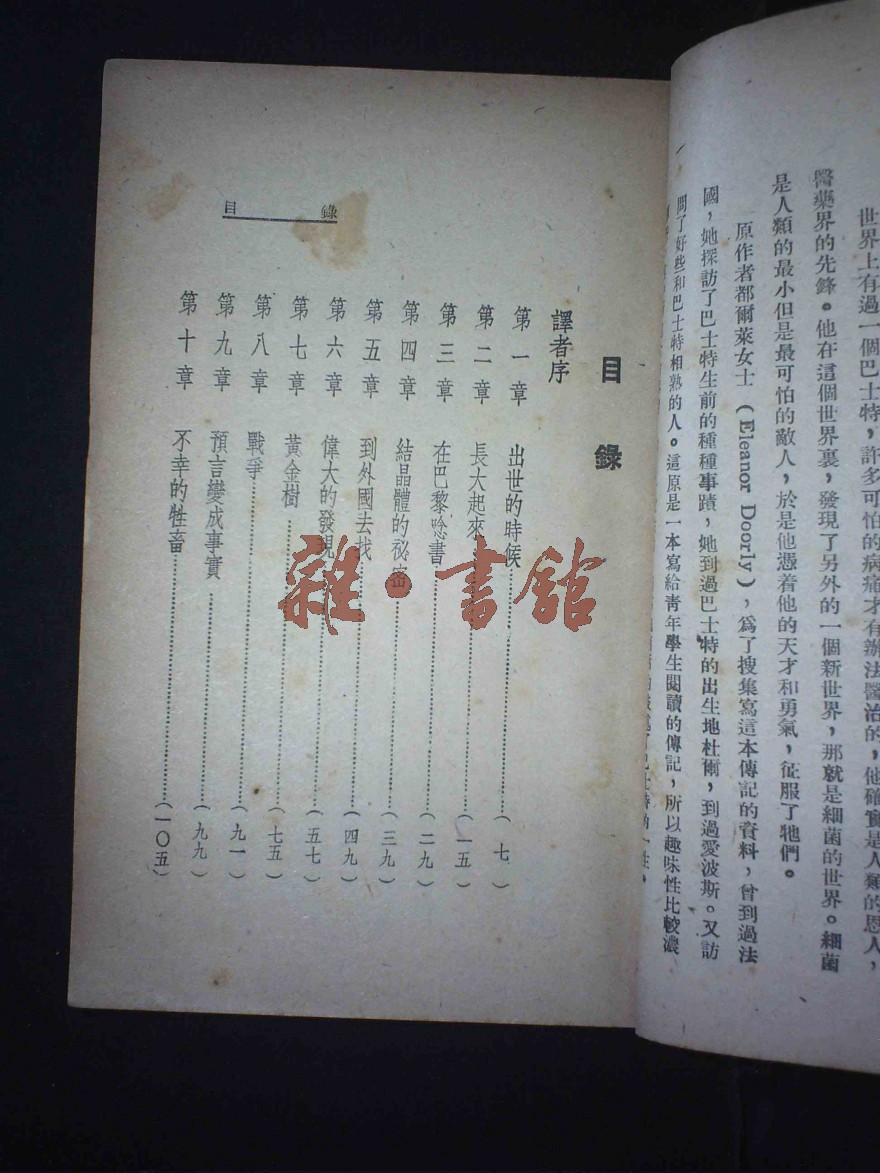 世界上有過一個巴士特，許多可怕的病痛才有辦法醫治的，他確實是人類的恩人，
醫藥界的先鋒。他在這個世界裏，發現了另外的一個新世界，那就是細菌的世界。細菌
是人類的最小但是最可怕的敵人，於是他憑着他的天才和勇氣，征服了牠們。
原作者都爾萊女士（Eleanor Doorly），爲了搜集寫這本傳記的資料，曾到過法
國，她探訪了巴士特生前的種種事蹟，她到過巴士特的出生地杜爾，到過愛波斯。又訪
問了好些和巴士特相熟的人。這原是一本寫給青年學生閱讀的傳記，所以趣味性比較濃
目錄
譯者序
第一章 出世的時候……（七）
第二章 長大起來……（一五）
第三章 在巴黎唸書……（二九）
第四章 結晶體的祕密……（三九）
第五章 到外國去找……（四九）
第六章 偉大的發現……（五七）
第七章 黃金樹……（七五）
第八章 戰爭……（九一）
第九章 預言變成事實……（九九）
第十章 不幸的牲畜……（一〇五）
目錄
雜·書館